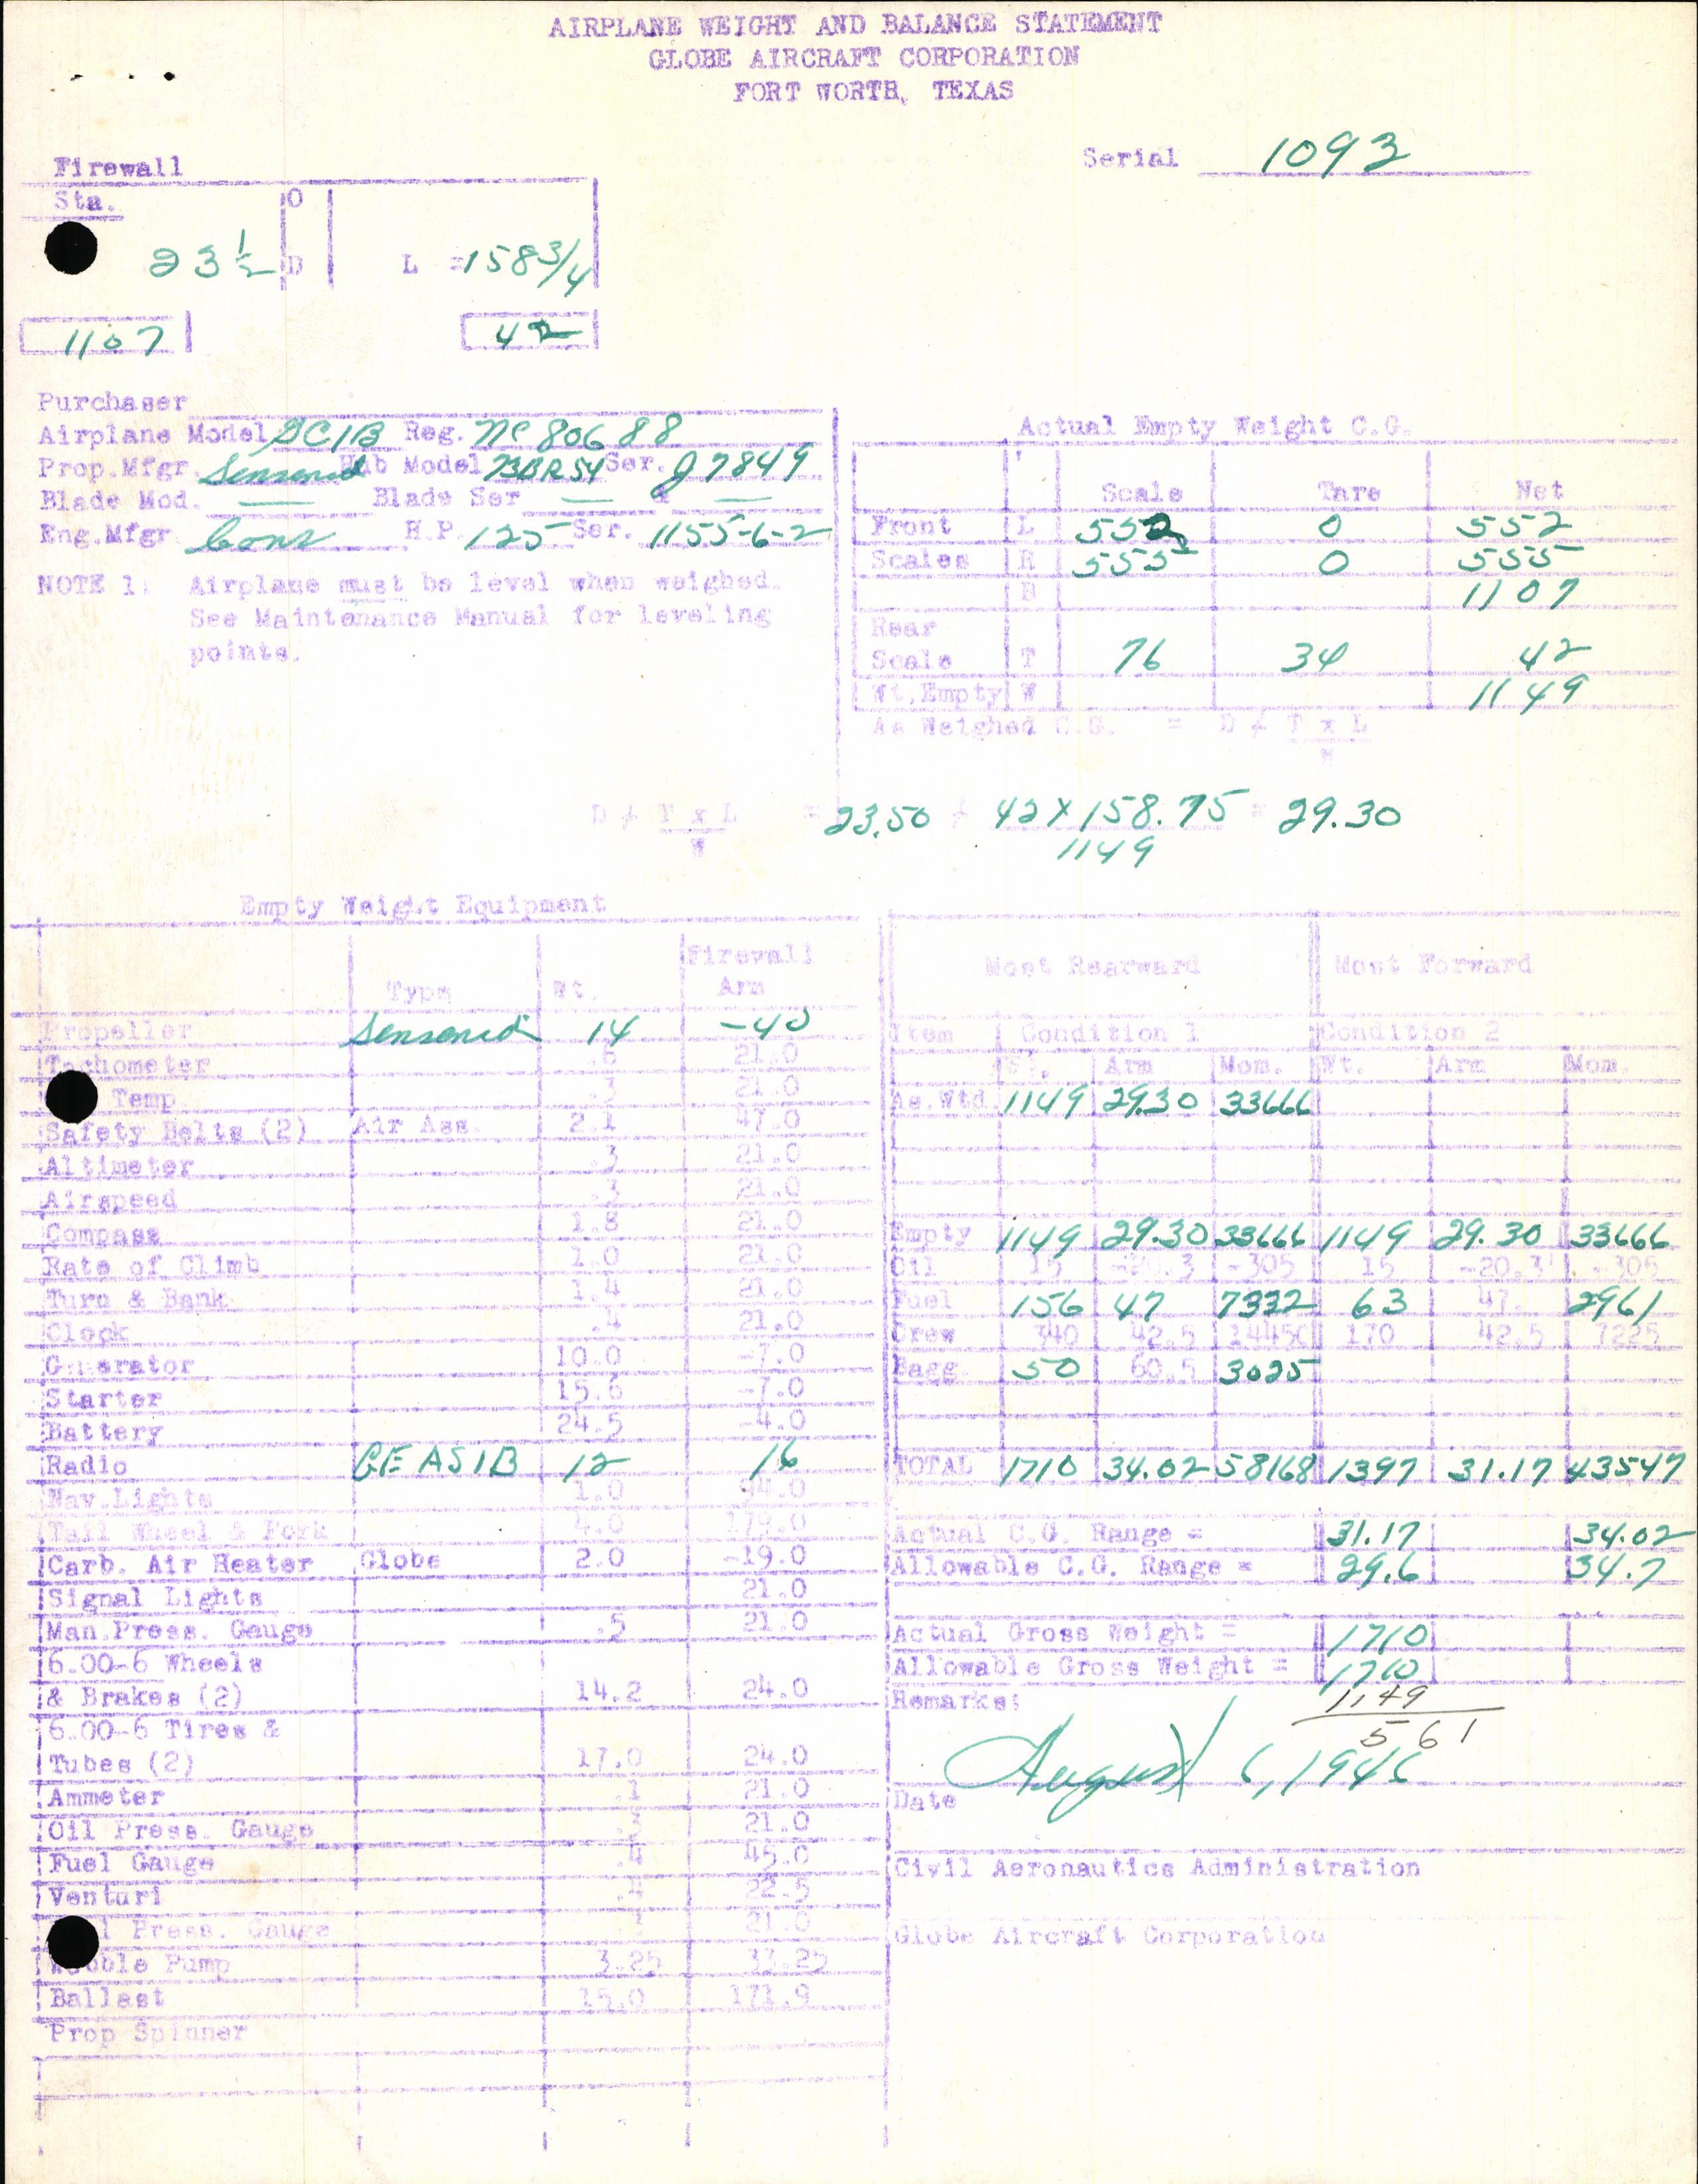 AIRPLANE WEIGHT AND BALANCE STATEMENT
GLOBE AIRCRAFT CORPORATION
FORT WORTH, TEXAS
Serial 1093
Firewall
Sta. O
23 1/2 D L = 158 3/4
1107 42
Purchaser
Airplane Model GC1B Reg. NC 80688
Prop.Mfgr. Sensenich Hub Model 73BR54 Ser. J7849
Blade Mod. — Blade Ser — & —
Eng.Mfgr. Cont H.P. 125 Ser. 1155-6-2
NOTE 1. Airplane must be level when weighed.
See Maintenance Manual for leveling
points.
Actual Empty Weight C.G.
Scale Tare Net
Front L 552 0 552
Scales R 555 0 555
B 1107
Rear
Scale T 76 34 42
Wt.Empty W 1149
As Weighed C.G. = D ≠ T x L
W
D ≠ T x L = 23.50 ≠ 42 X 158.75 = 29.30
W 1149
Empty Weight Equipment
Type Wt. Firewall
Arm
Propeller Sensenich 14 -40
Tachometer .6 21.0
Temp. .3 21.0
Safety Belts (2) Air Ass. 2.1 47.0
Altimeter .3 21.0
Airspeed .3 21.0
Compass 1.8 21.0
Rate of Climb 1.0 21.0
Turn & Bank 1.4 21.0
Clock .4 21.0
Generator 10.0 -7.0
Starter 15.6 -7.0
Battery 24.5 -4.0
Radio GE AS1B 12 16
Nav.Lights 1.0 .0
Tail Wheel & Fork 4.0 179.0
Carb. Air Heater Globe 2.0 -19.0
Signal Lights 21.0
Man.Press. Gauge .5 21.0
6.00-6 Wheels
& Brakes (2) 14.2 24.0
6.00-6 Tires &
Tubes (2) 17.0 24.0
Ammeter .1 21.0
Oil Press. Gauge .3 21.0
Fuel Gauge .4 45.0
Venturi .4 22.5
Press. Gauge 21.0
Wobble Pump 3.25 33.25
Ballast 15.0 171.9
Prop Spinner
Most Rearward Most Forward
Item Condition 1 Condition 2
Wt. Arm Mom. Wt. Arm Mom.
As.Wtd. 1149 29.30 33666
Empty 1149 29.30 33666 1149 29.30 33666
Oil 15 -20.3 -305 15 -20.3 -305
Fuel 156 47 7332 63 47. 2961
Crew 340 42.5 14450 170 42.5 7225
Bagg. 50 60.5 3025
TOTAL 1710 34.02 58168 1397 31.17 43547
Actual C.G. Range = 31.17 34.02
Allowable C.G. Range = 29.6 34.7
Actual Gross Weight = 1710
Allowable Gross Weight = 1710
Remarks: 1149
561
Date August 6, 1946
Civil Aeronautics Administration
Globe Aircraft Corporation